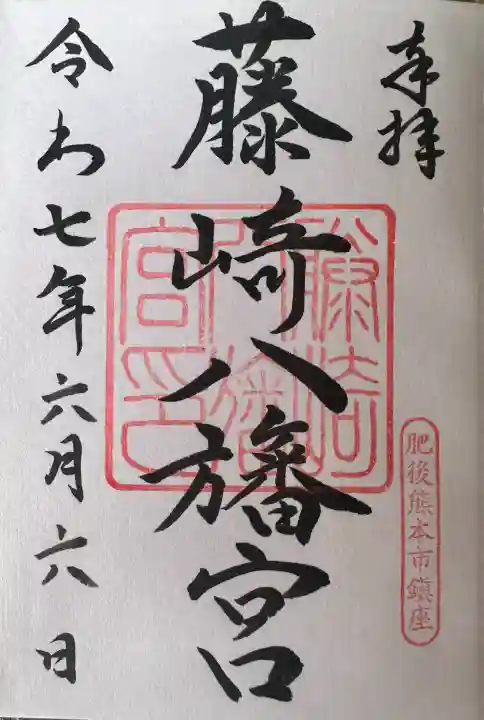 奉拝
肥後熊本市鎮座
藤崎八旛宮
藤崎八旛宮印
令和七年六月六日